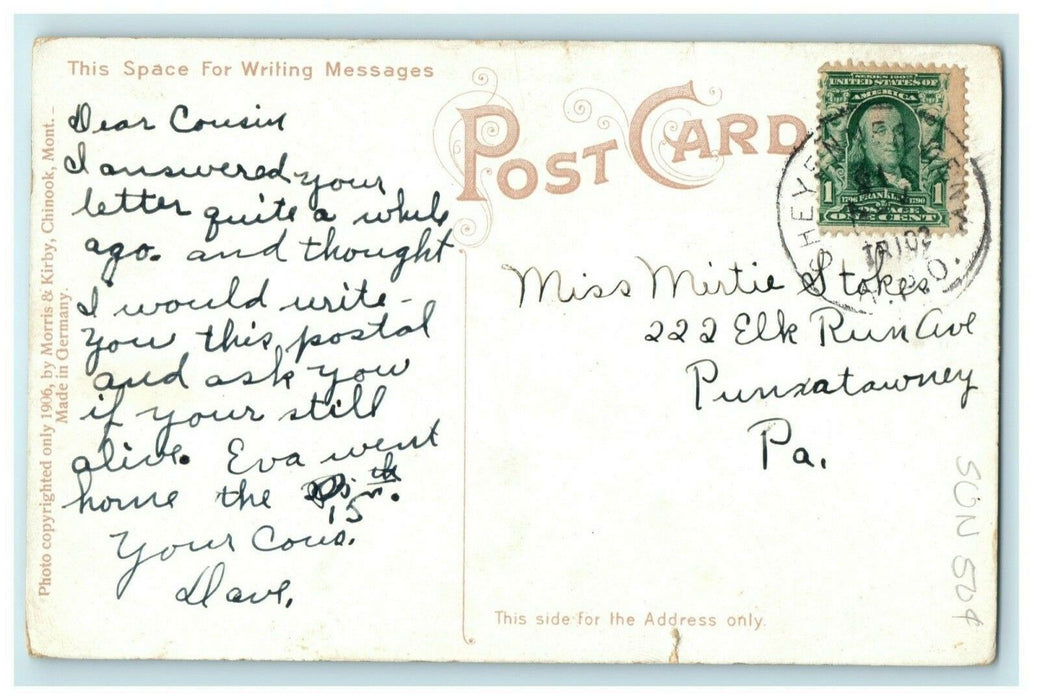 This Space For Writing Messages
POST CARD
Dear Cousin
I answered your
letter quite a while
ago. and thought
I would write-
you this postal
and ask you
if your still
alive. Eva went
home the 15th.
Your Cous.
Dave.
Photo copyrighted only 1906, by Morris & Kirby, Chinook, Mont.
Made in Germany.
SERIES 1902
UNITED STATES OF
AMERICA
1 1
1706 FRANKLIN 1790
POSTAGE
ONE CENT
TR 102
R.P.O.
Miss Mirtie Stokes
222 Elk Run Ave
Punxatawney
Pa.
This side for the Address only.